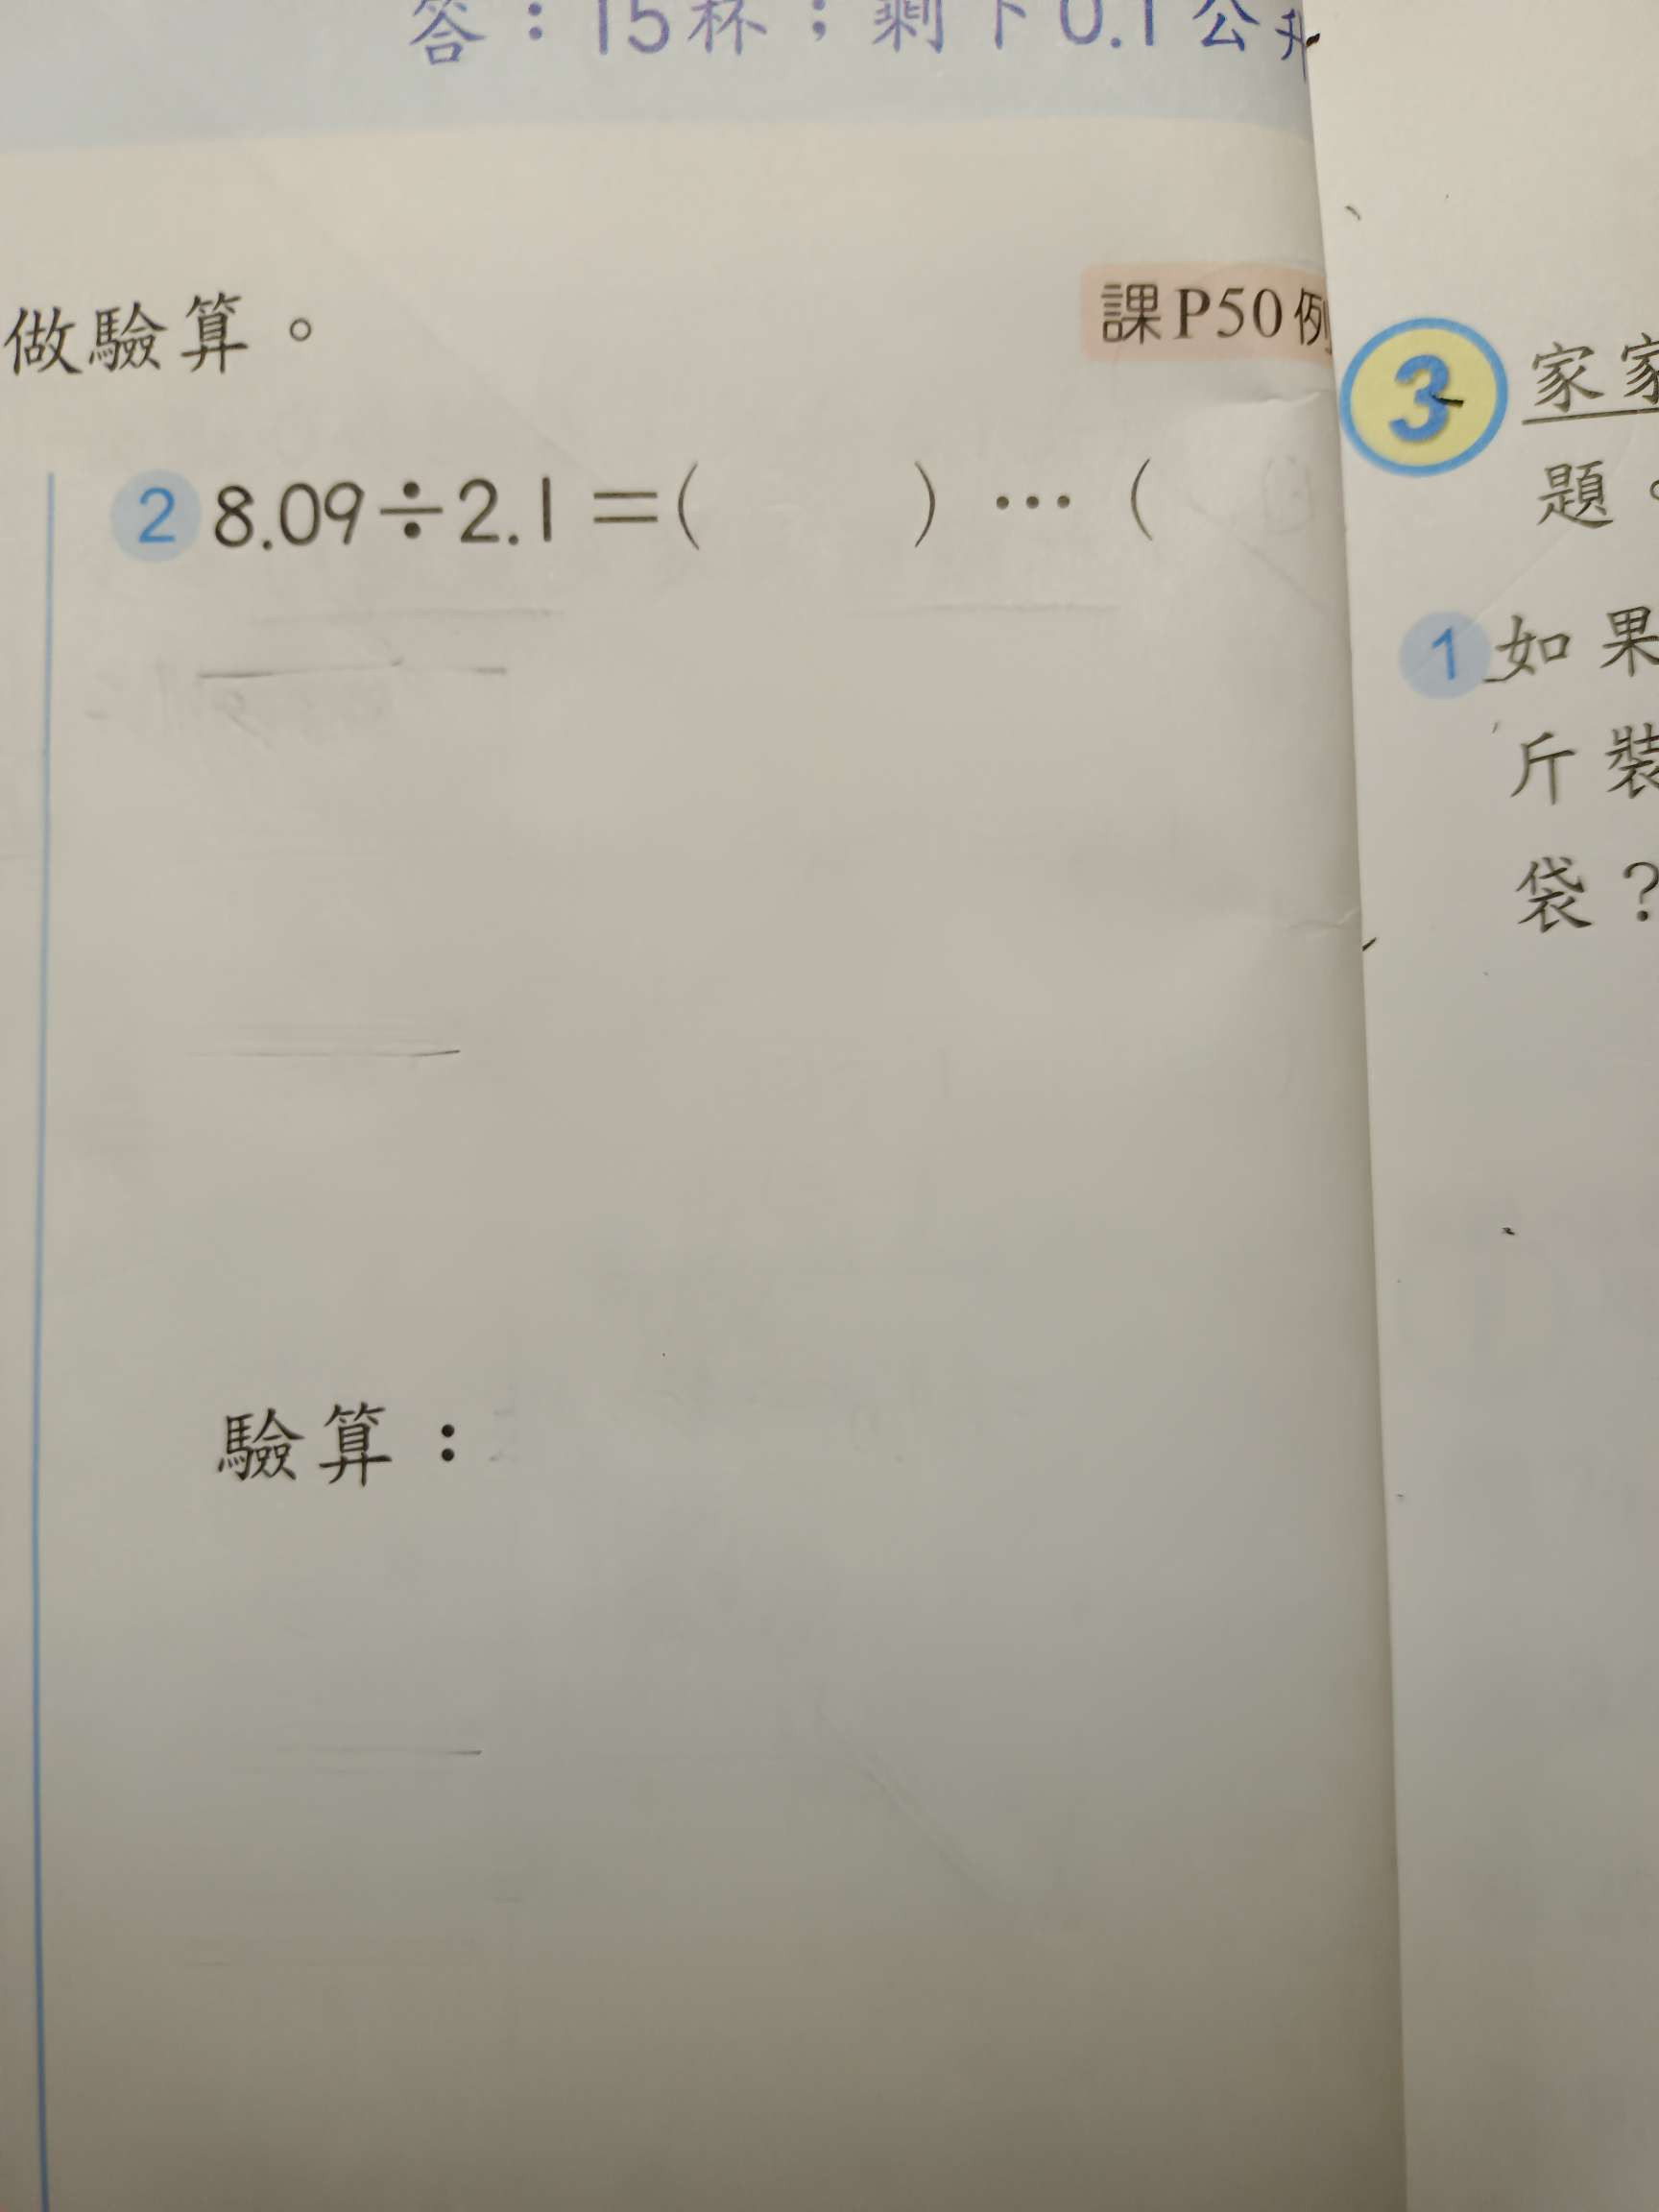 答：15杯；剩下0.1公升
做驗算。
課P50例
2 8.09÷2.1＝(　　)…(
驗算：
3 家家
題。
1 如果
斤裝
袋？